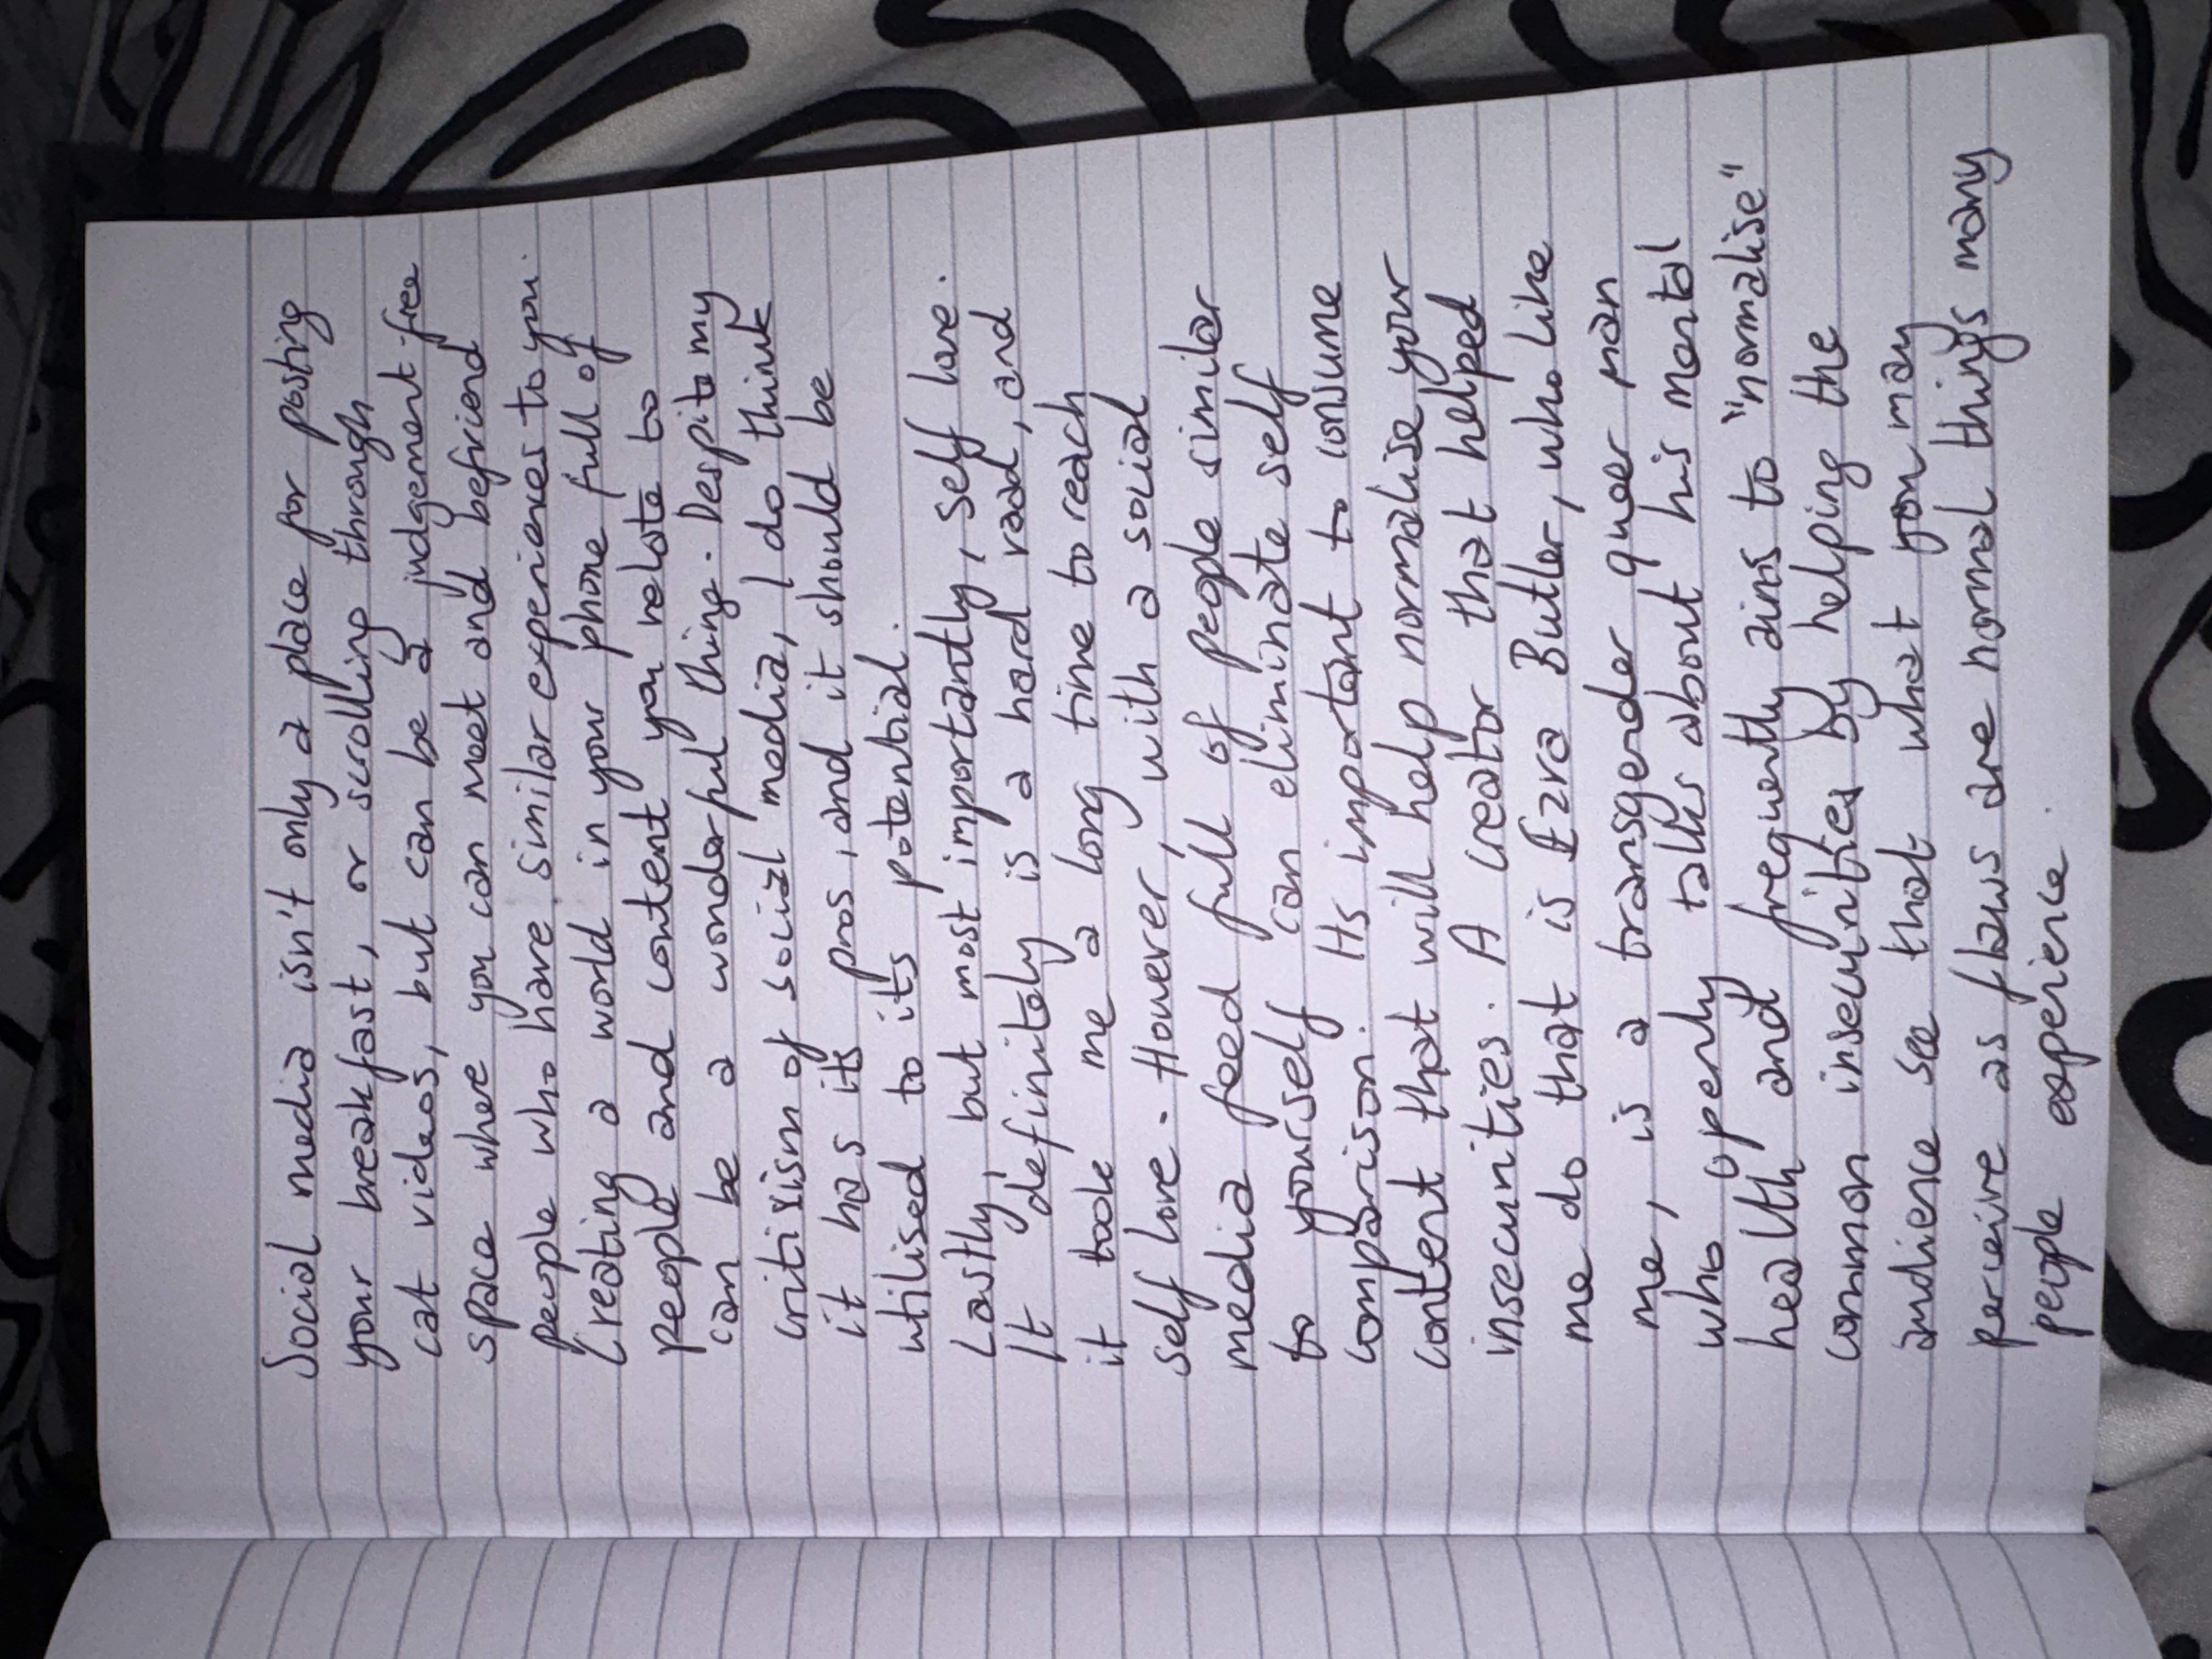 Social media isn't only a place for posting
your breakfast, or scrolling through
cat videos, but can be a judgement-free
space where you can meet and befriend
people who have similar experiences to you.
Creating a world in your phone full of
people and content you relate to
can be a wonderful thing. Despite my
critisism of social media, I do think
it has its pros, and it should be
utilised to its potential.
Lastly, but most importantly, self love.
It definitely is a hard road, and
it took me a long time to reach
self love. However, with a social
media feed full of people similar
to yourself can eliminate self
comparison. Its important to consume
content that will help normalise your
insecurities. A creator that helped
me do that is Ezra Butler, who like
me, is a transgender queer man
who openly talks about his mental
health and frequently aims to "normalise"
common insecurities by helping the
audience see that what you may
perceive as flaws are normal things many
people experience.